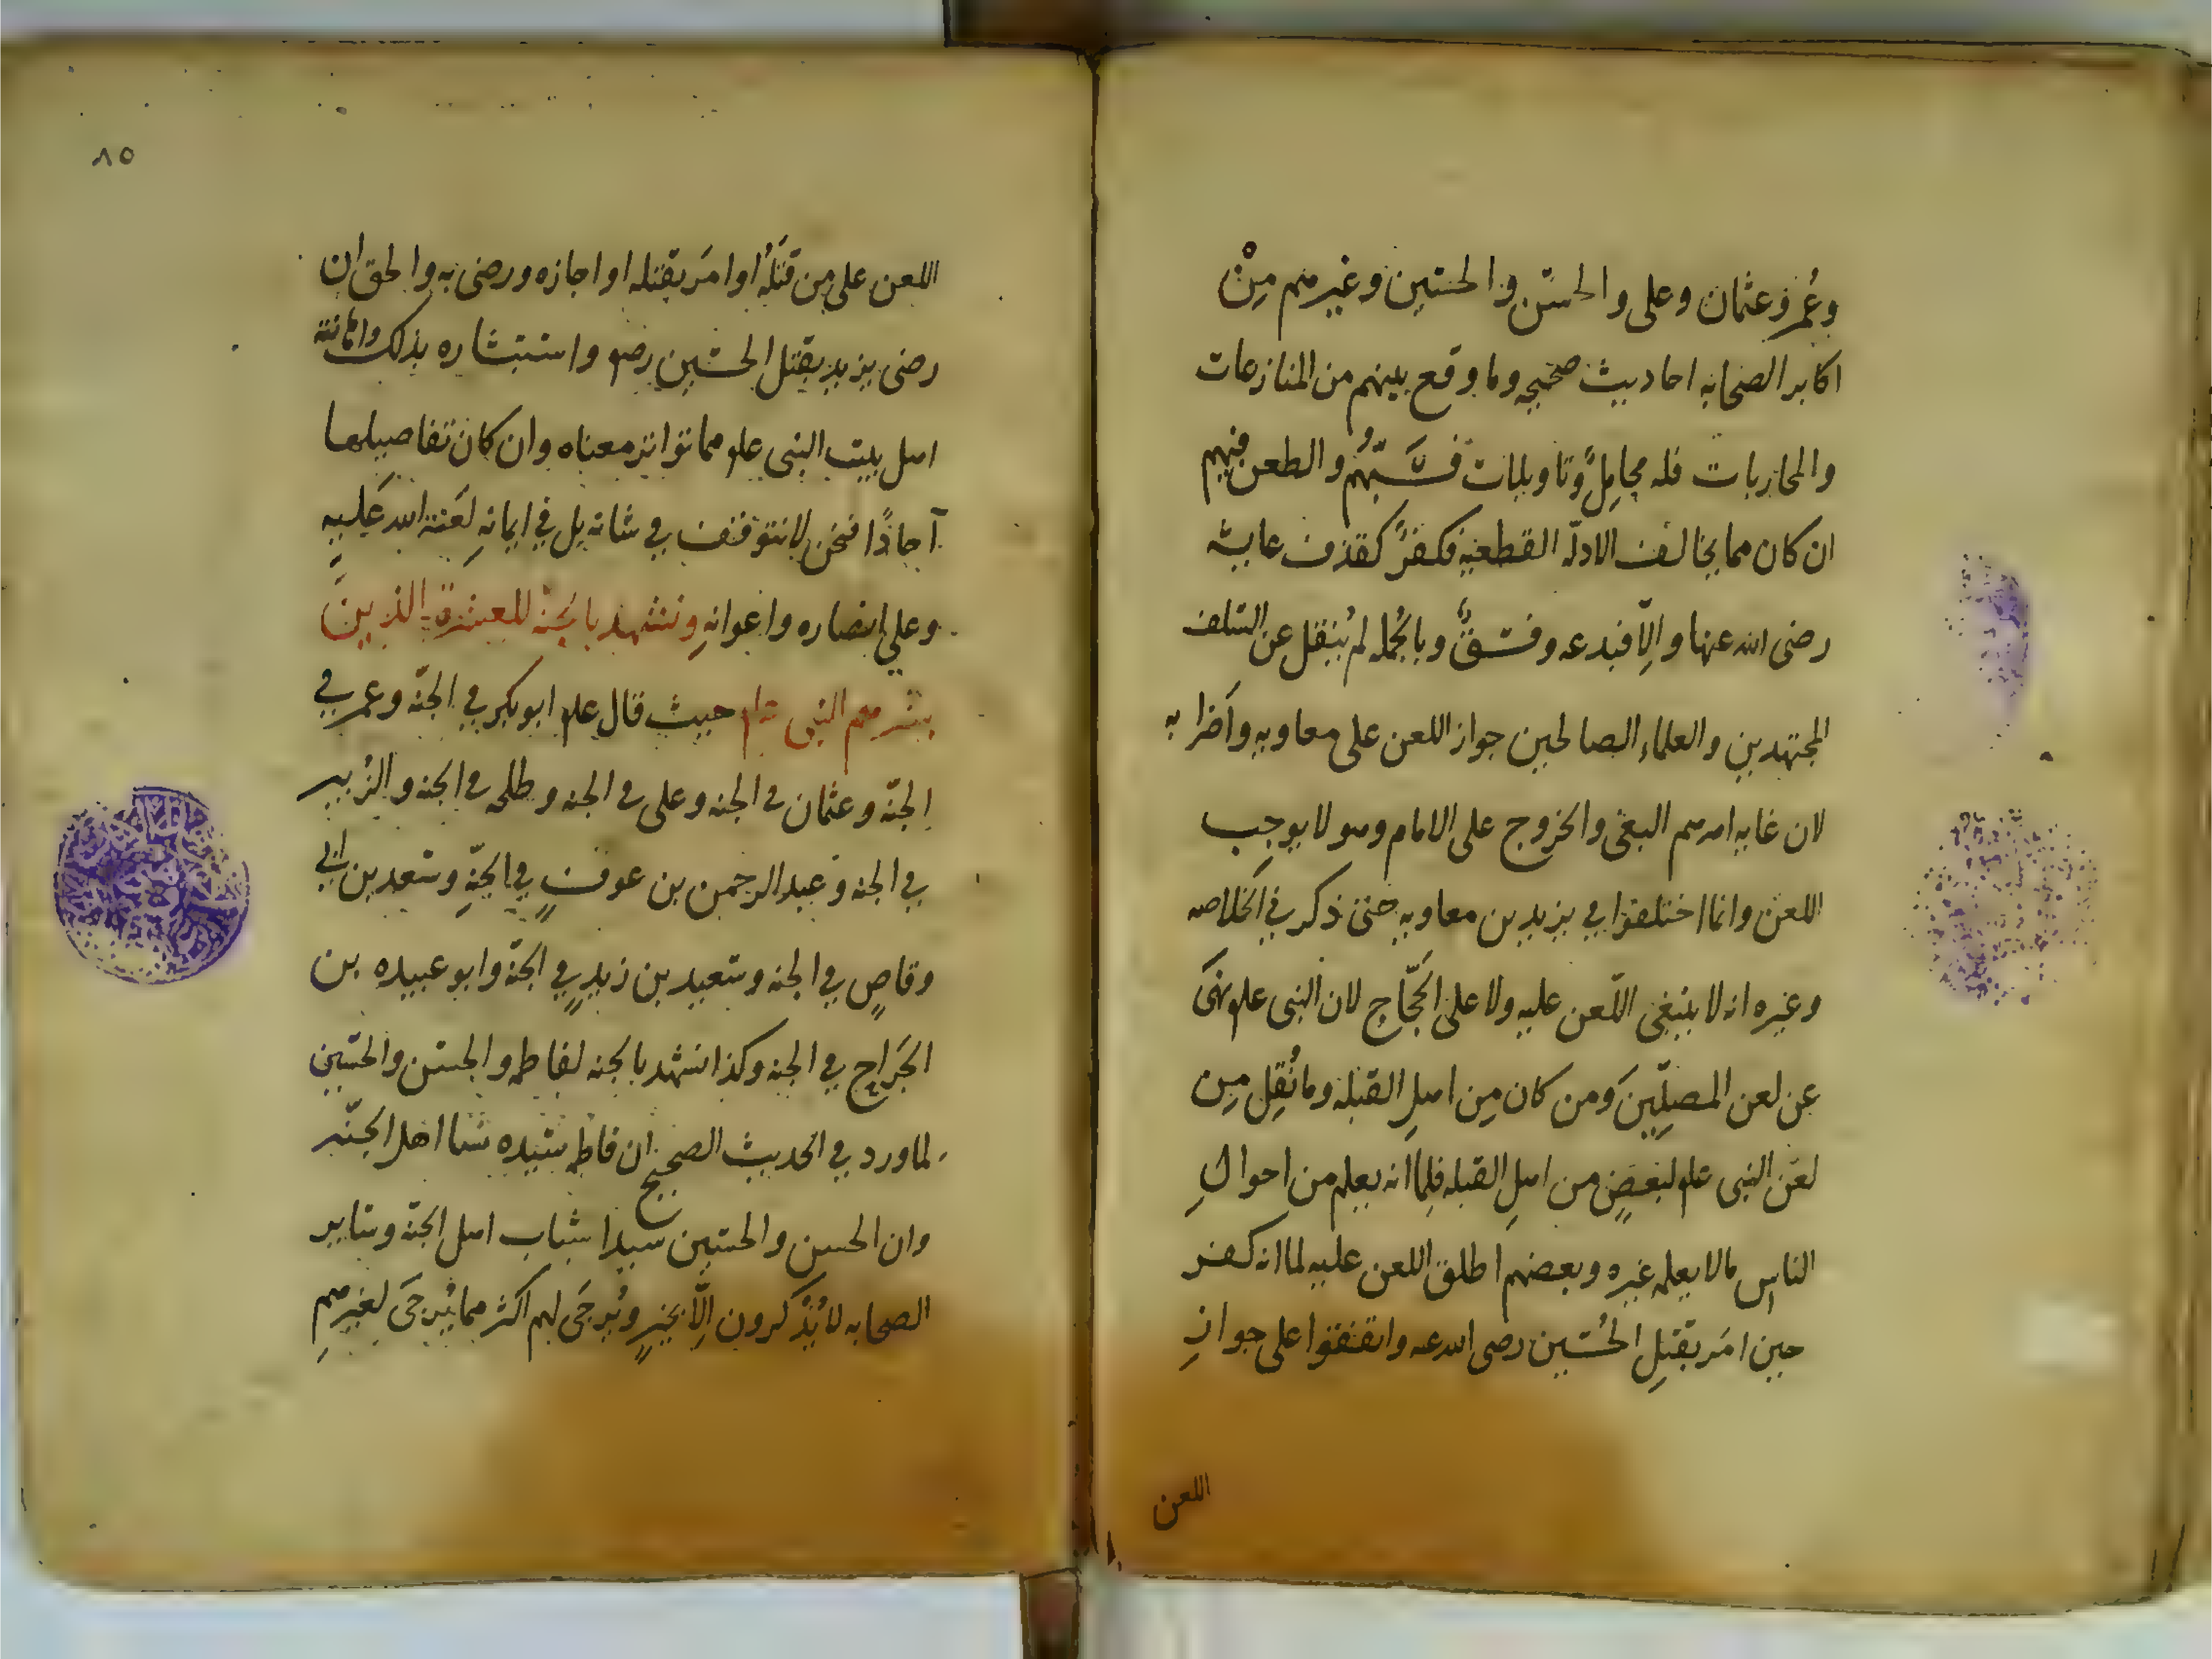 وعُمر وعثمان وعلى والحسَن والحسَين وغيرهم مِنْ
اكابر الصحابه احاديث صحيحه وما وقع بينهم من المنازعات
والمحاربات فله محامِلُ وتاويلات فسَبُّهُم والطعن فيهم
ان كان مما يخالف الادلّه القطعيه فكفرٌ كقذف عايشه
رضى الله عنها والّا فبدعه وفسقٌ وبالجُمله لم يُنقل عن السّلف
المجتهدين والعلماء الصالحين جواز اللعن على معاويه واَضرابه
لان غايه امرهم البغى والخروج على الامام وهو لا يوجب
اللعن وانما اختلفوا في يزيد بن معاويه حتى ذكر في الخلاصه
وغيره انه لا ينبغى اللّعن عليه ولا على الحَجّاج لان النبى علم نهَى
عن لعن المصلّين وَمن كان مِن اهلِ القبله وما نُقِل مِن
لعن النبى علم لبعضٍ من اهلِ القبله فلِما انه يعلم من احوالِ
الناس مالا يعلمه غيره وبعضهم اطلق اللعن عليه لما انه كفر
حين امَر بقتلِ الحُسَين رضى الله عنه واتفقوا على جوازِ
اللعن
٨٥
اللعن على من قتَلهُ او امَر بقتله او اجازه ورضى به والحق ان
رضى يزيد بقتل الحسَين رضه واستبشاره بذلك واهانته
اهل بيت النبى علم مما تواتر معناه وان كان تفاصيلها
آحادًا فنحن لا نتوقف في شانه بل في ايمانهِ لعَنة الله عَليهِ
وعلى انصاره واعوانهِ ونشهد بالجنّه للعشرة الذينَ
بشرهم النبى علم حيث قال علم ابو بكر في الجنّه وعمر في
الجنّه وعثمان في الجنه وعلى في الجنه وطلحه في الجنه والزُبير
في الجنه وعبد الرحمن بن عوفٍ في الجنّهِ وسَعد بن ابي
وقاصٍ في الجنه وسَعيد بن زيدٍ في الجنّه وابو عبيده بن
الجَراح في الجنه وكذا نشهد بالجنه لفاطمه والحسَن والحسَين
لما ورد في الحديث الصحيح ان فاطمه سَيّده نسا اهل الجنّه
وان الحسن والحسَين سيدا شباب اهل الجنّه وسَاير
الصحابه لا يُذْكرون الّا بخيرٍ ويُرجَى لهم اكثر مما يُرجَى لغيرهم